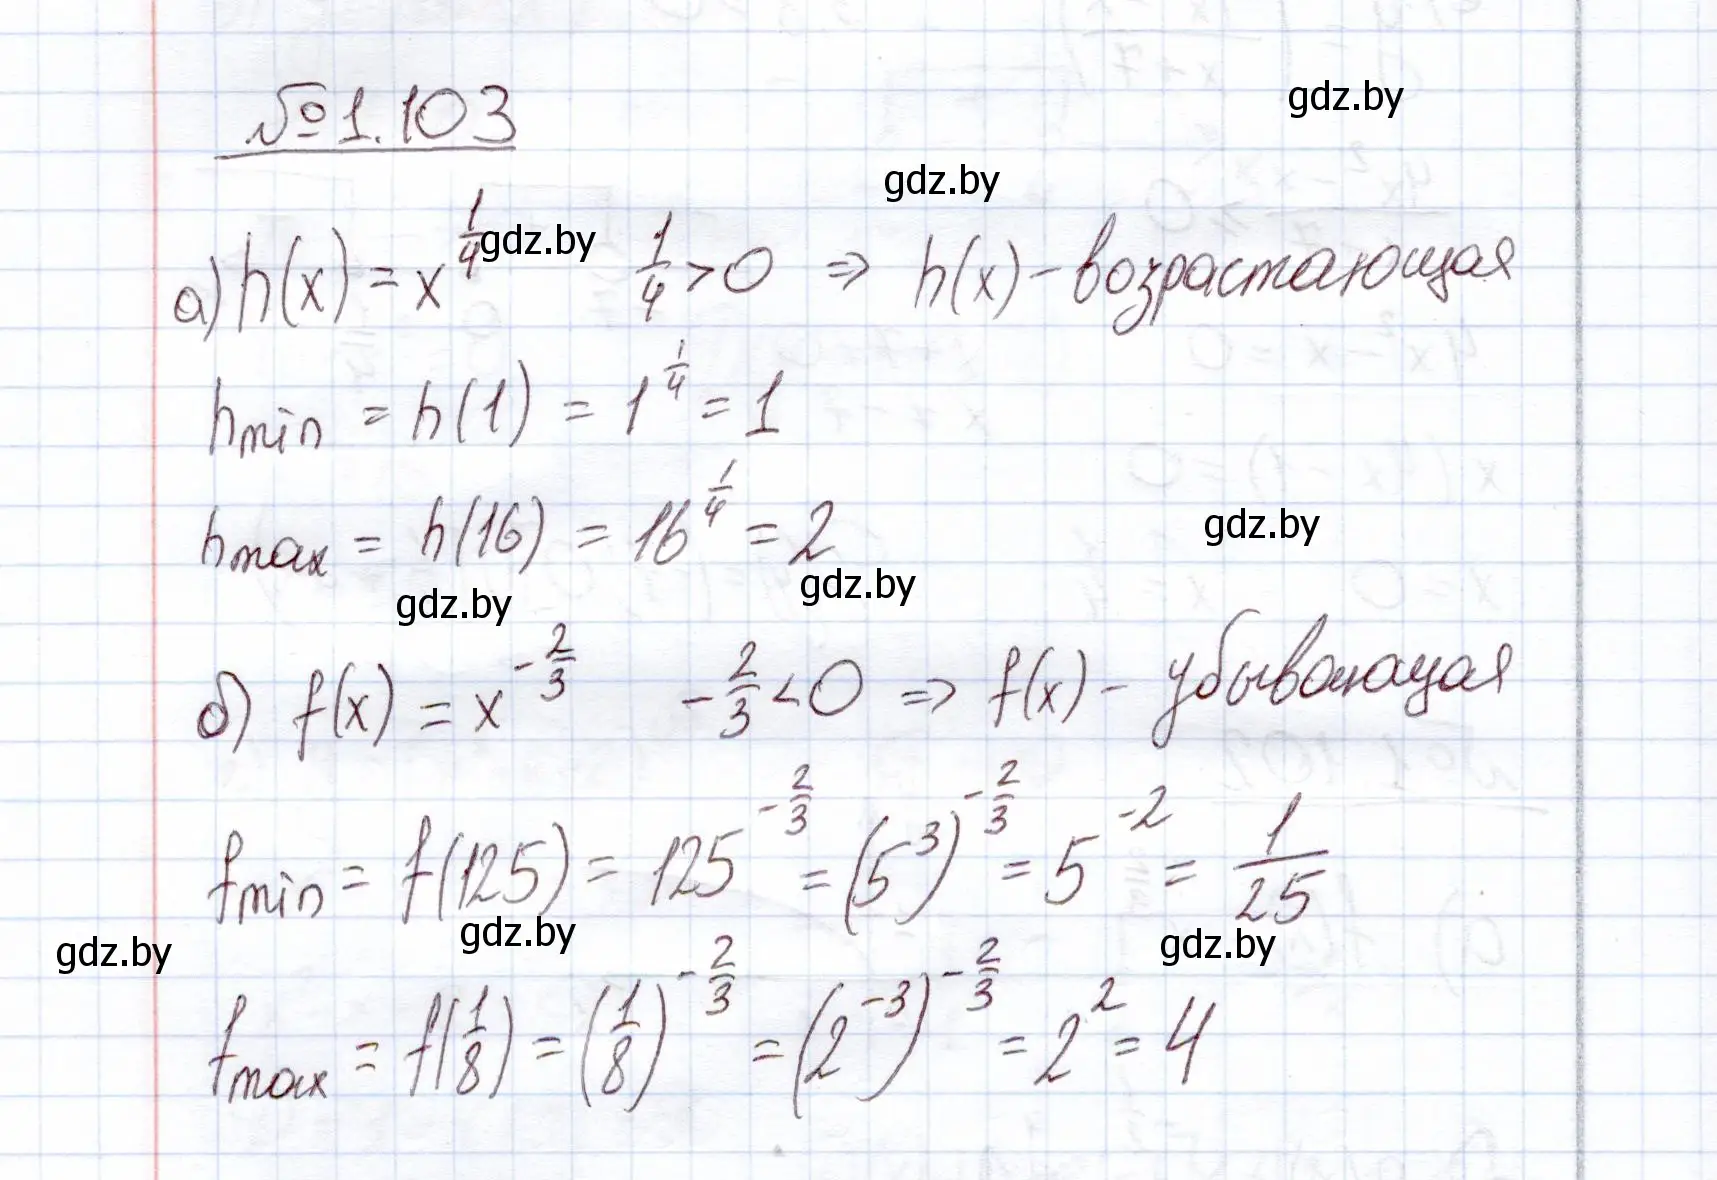 №1.103
а) h(x) = x^{1/4}   1/4 > 0 ⇒ h(x) – возрастающая
h_{min} = h(1) = 1^{1/4} = 1
h_{max} = h(16) = 16^{1/4} = 2
б) f(x) = x^{-2/3}   -2/3 < 0 ⇒ f(x) – убывающая
f_{min} = f(125) = 125^{-2/3} = (5^3)^{-2/3} = 5^{-2} = 1/25
f_{max} = f(1/8) = (1/8)^{-2/3} = (2^{-3})^{-2/3} = 2^2 = 4
gdz.by
gdz.by
gdz.by
gdz.by
gdz.by
gdz.by
gdz.by
gdz.by
gdz.by